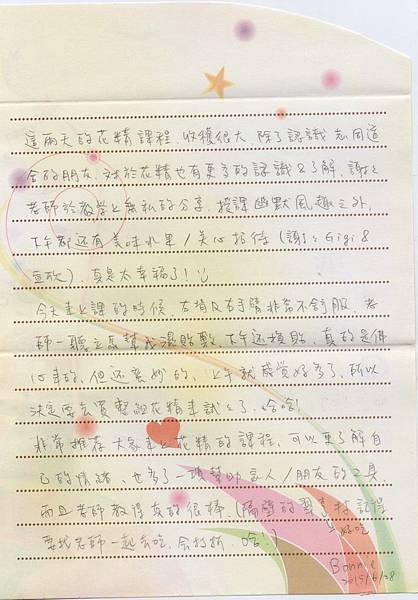 這兩天的花精課程，收穫很大，除了認識志同道
合的朋友，對於花精也有更多的認識及了解，謝謝
老師於教學上無私的分享，授課幽默風趣之外，
下午都还有美味水果/点心招待（謝謝 Gigi &
），真是太幸福了！
今天來上課的時候，右肩及右手臂非常不舒服，老
師一聽立馬幫我濕貼敷，下午还換貼，真的是佛
心來的，但还蠻妙的，上午就感覺好多了，所以
決定要去買整組花精來試試了，哈哈！
非常推荐大家來上花精的課程，可以更了解自
己的情緒，也多了一項幫助家人/朋友的工具
而且老師教得真的很棒。（隔壁的 記得
要找老師一起去吃，会打折，哈。） 好吃
Bonnie
2015/6/28